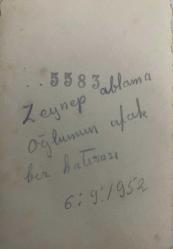 .. 5583 ablama
Zeynep
Oğlumun ufak
bir hatırası
6:9:1952